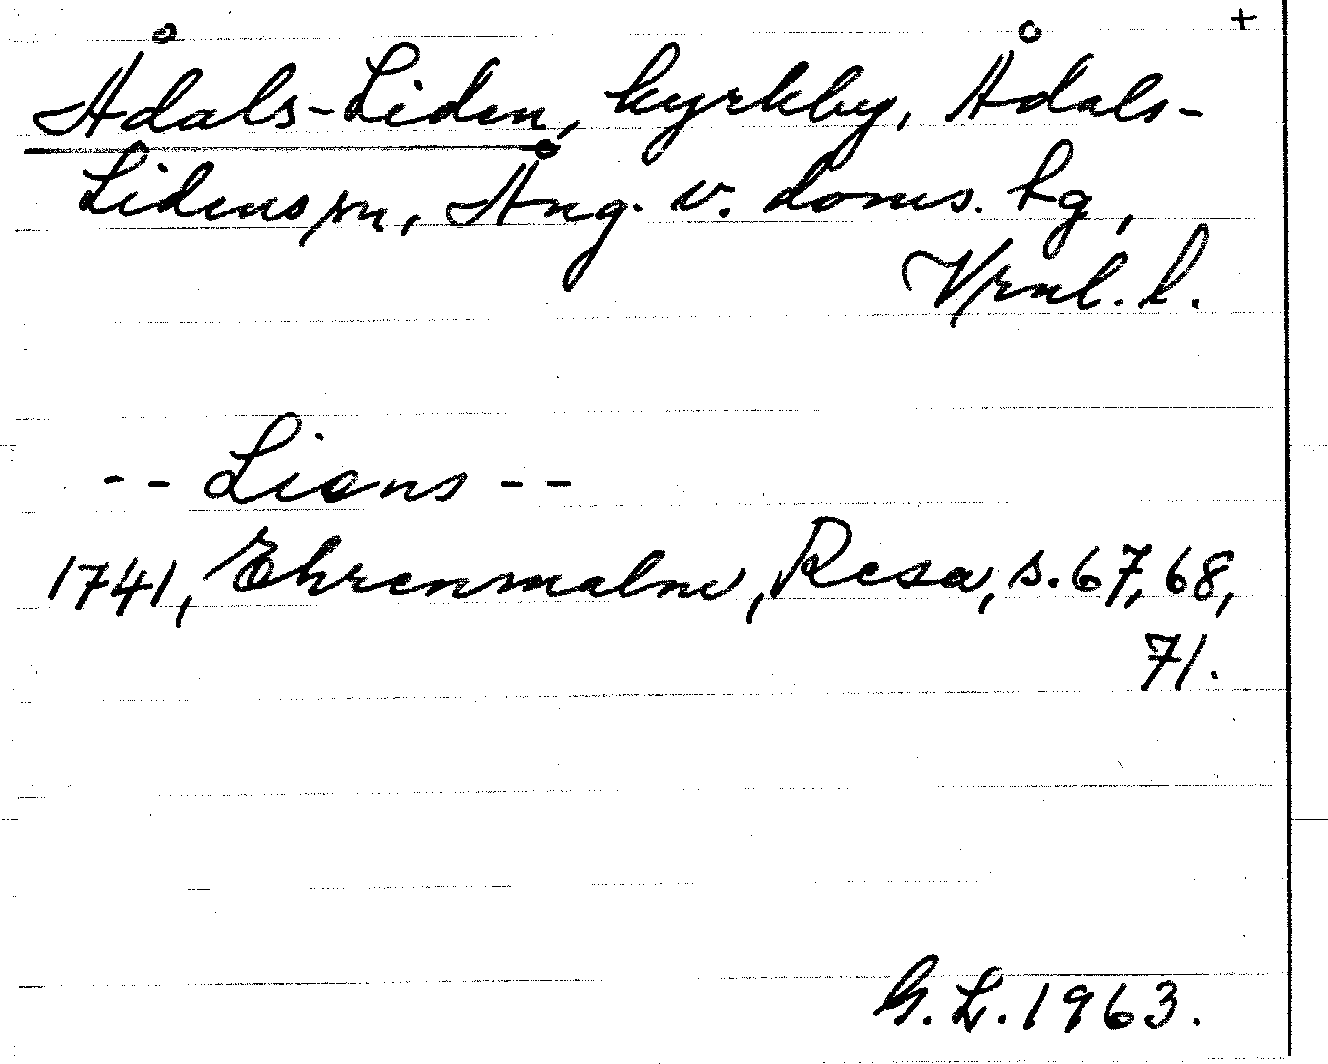 +
Ådals-Liden, kyrkby, Ådals-
Lidens sn, Ång. v. doms. hg,
Vrnl. l.
-- Lians --
1741, Ehrenmalm, Resa, s. 67, 68,
71.
G. L. 1963.